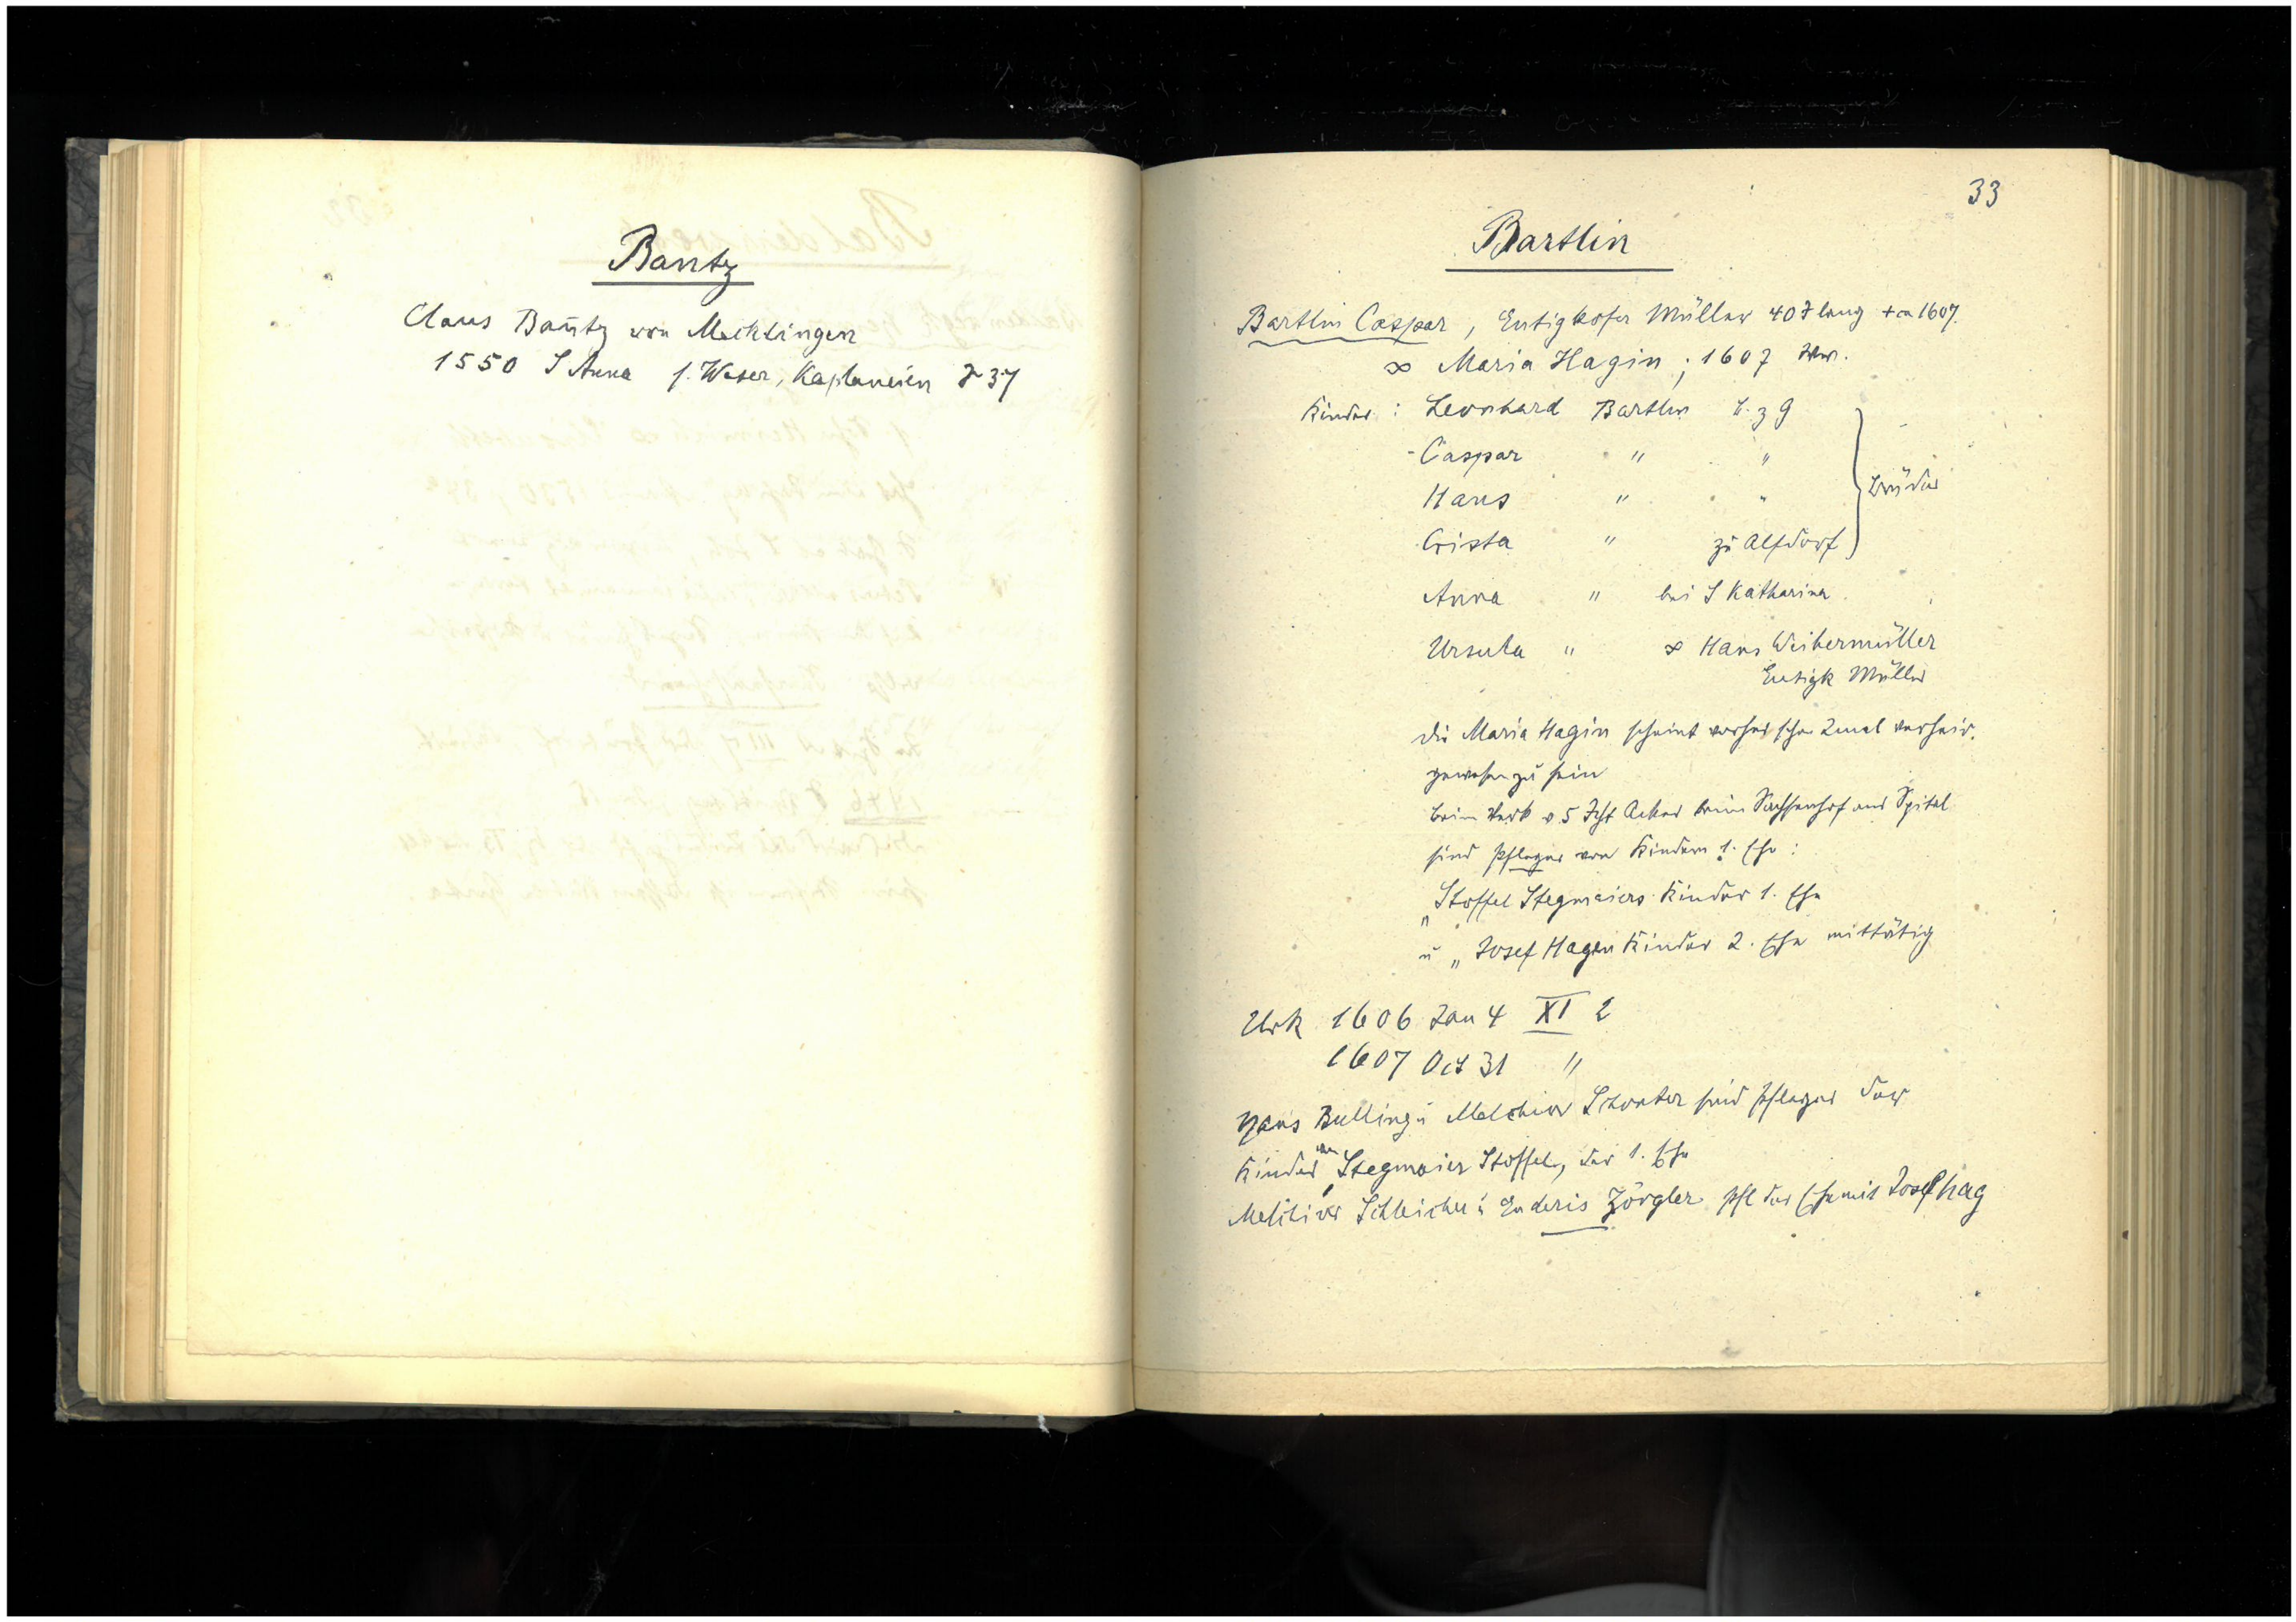 Bantz
Claus Bantz von Mechlingen
1550 S Anna s. Weser, Kaplaneien J 37
33
Bartlin
Bartlin Caspar, Eutigkofer Müller 40 J lang + ca 1607.
∞ Maria Hagin; 1607 Wwe.
Kinder: Leonhard Bartlin B. z G
Caspar " "
Hans " "
Crista " zu Alfdorf
Brüder
Anna " bei S Katharina
Ursula " ∞ Hans Weihermüller
Eutigk Müller
Die Maria Hagin scheint vorher schon 2mal verheir.
gewesen zu sein
beim Verk v 5 Jcht Acker beim Sachsenhof ans Spital
sind Pfleger von Kindern 1. Ehe:
"Stoffel Stegmaiers Kinder 1. Ehe
u " Josef Hagen Kinder 2. Ehe mittätig
Urk 1606 Jan 4 XI 2
1607 Oct 31 "
Hans Bulling u Melchior Schonter sind Pfleger der
Kinder von Stegmaier Stoffel, der 1. Ehe
Melchior Schleicher u Enderis Zörgler Pfl der Ehe mit Josef hag